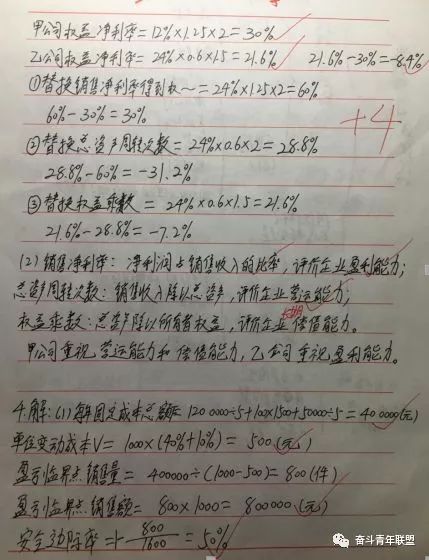 甲公司权益净利率=12%×1.25×2=30%
乙公司权益净利率=24%×0.6×1.5=21.6% 21.6%-30%=-8.4%
①替换销售净利率得到权~=24%×1.25×2=60%
60%-30%=30%
+4
②替换总资产周转次数=24%×0.6×2=28.8%
28.8%-60%=-31.2%
③替换权益乘数=24%×0.6×1.5=21.6%
21.6%-28.8%=-7.2%
(2)销售净利率:净利润占销售收入的比率,评价企业盈利能力;
总资产周转次数:销售收入除以总资产,评价企业营运能力;
权益乘数:总资产除以所有者权益,评价企业长期偿债能力。
甲公司重视营运能力和偿债能力,乙公司重视盈利能力。
4.解:(1)每年固定成本总额=1200000÷5+100×1500+50000÷5=400000(元)
单位变动成本V=1000×(40%+10%)=500(元)
盈亏临界点销售量=400000÷(1000-500)=800(件)
盈亏临界点销售额=800×1000=800000(元)
安全边际率=1-800/1600=50%
奋斗青年联盟